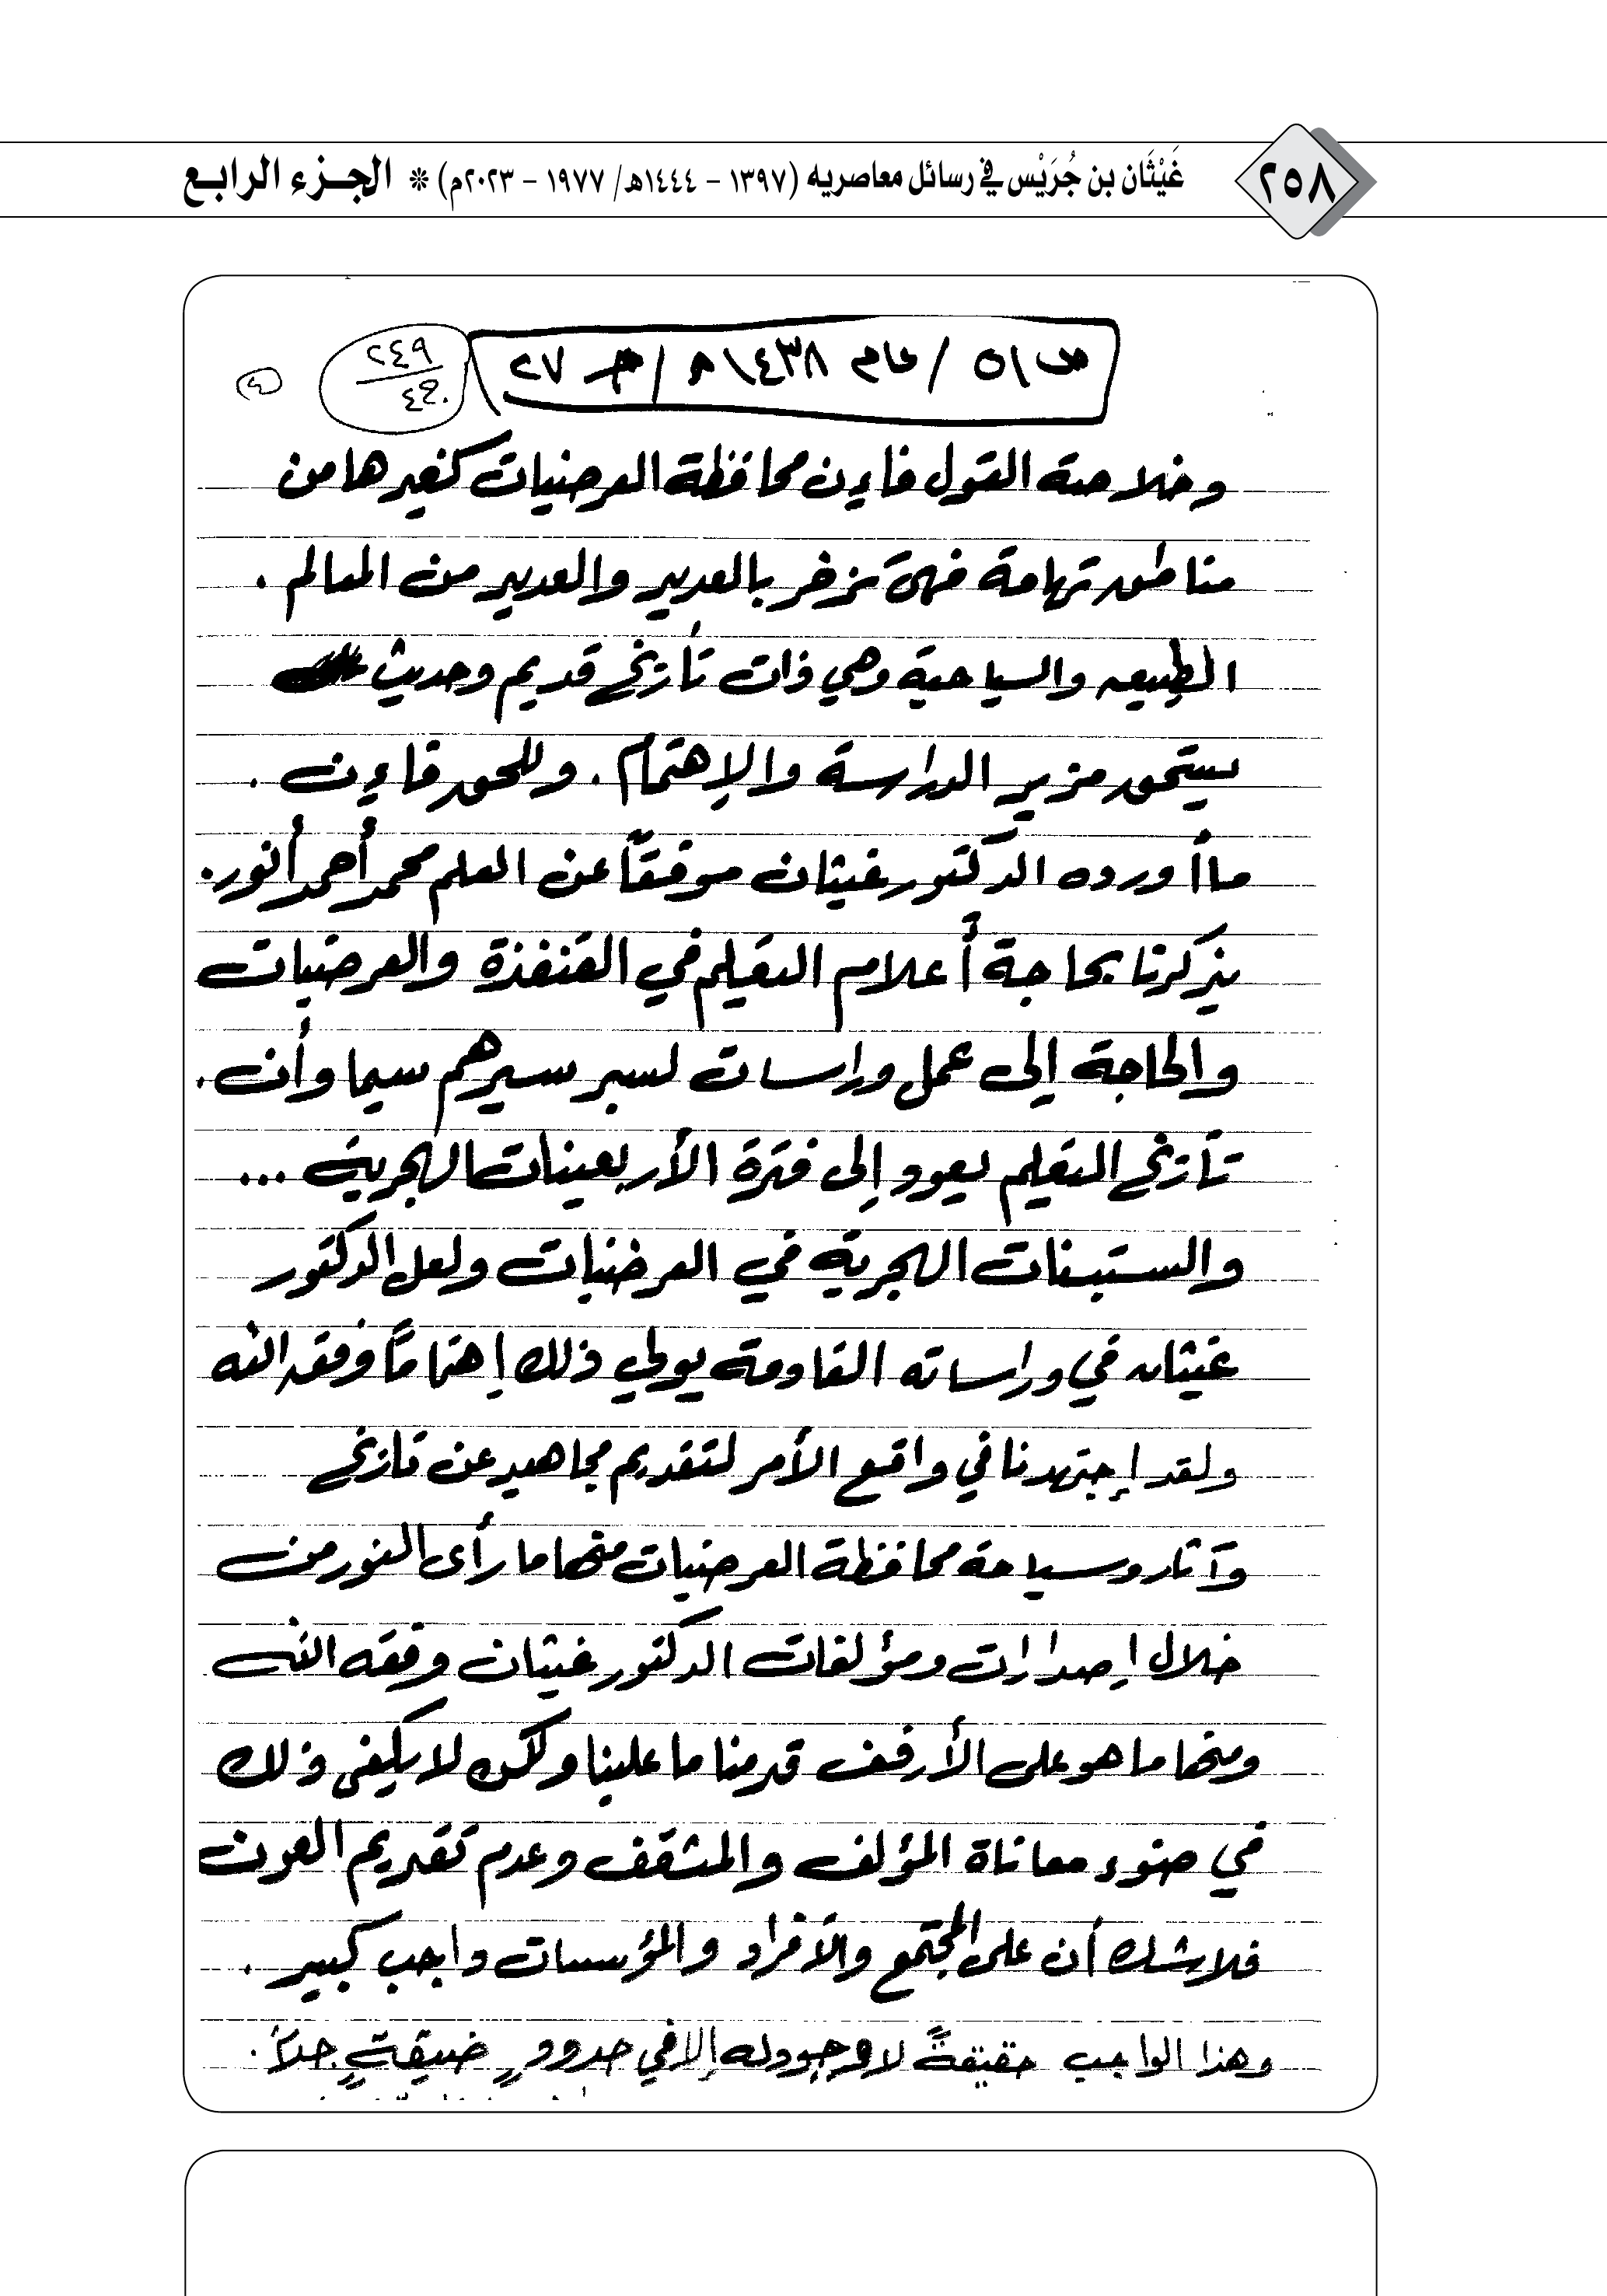 ٢٥٨
غَيْثَان بن جُرَيْس في رسائل معاصريه (١٣٩٧ – ١٤٤٤هـ/ ١٩٧٧ – ٢٠٢٣م) ❊ الجزء الرابع
ص٥١ / عام ١٤٣٨هـ / جـ ٢٧
٢٤٩
وخلاصة القول فإن محافظة العرضيات كغيرها من
مناطق تهامة فهي تزخر بالعديد والعديد من المعالم .
الطبيعه والسياحية وهي ذات تأريخ قديم وحديث
يستحق مزيد الدراسة والإهتمام . وللحق فإن .
ما أورده الدكتور غيثان موفقاً عن المعلم محمد أحمد أنور .
يذكرنا بحاجة أعلام التعليم في القنفذة والعرضيات
والحاجة إلى عمل دراسات لسبر سيرهم سيما وأن .
تأريخ التعليم يعود إلى فترة الأربعينات الهجرية ...
والستينات الهجرية في العرضيات ولعل الدكتور
غيثان في دراساته القادمة يولي ذلك إهتماماً وفقه الله
ولقد إجتهدنا في واقع الأمر لتقديم مجاهيد عن تاريخ
وآثار وسياحة محافظة العرضيات منها ما رأى النور من
خلال إصدارات ومؤلفات الدكتور غيثان وفقه الله
ومنها ما هو على الأرفف قدمنا ما علينا ولكن لا يكفي ذلك
في ضوء معاناة المؤلف والمثقف وعدم تقديم العون
فلا شك أن على المجتمع والأفراد والمؤسسات واجب كبير .
وهذا الواجب حقيقةً لا وجود له إلا في حدودٍ ضيقةٍ جداً .